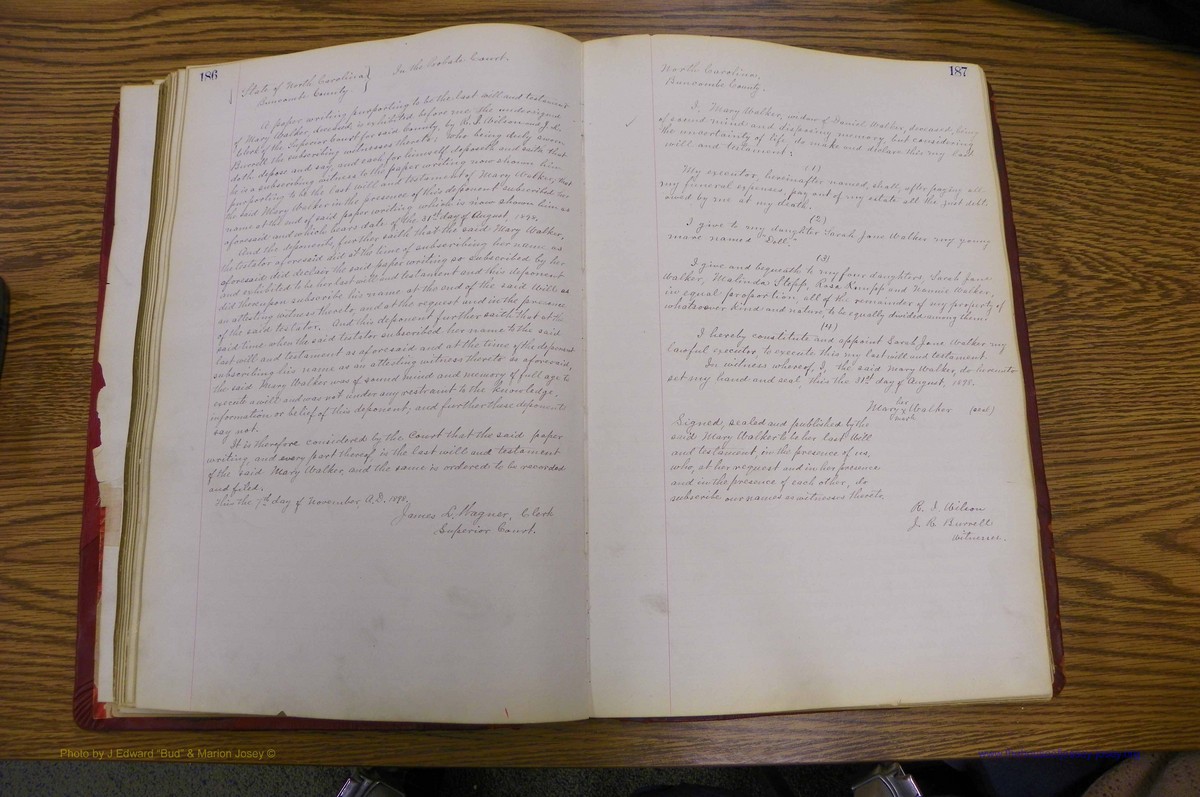 186
State of North Carolina } In the Probate Court.
Buncombe County
A paper writing purporting to be the last will and testament
of Mary Walker, deceased, is exhibited before me, the undersigned
Clerk of the Superior Court for said County, by R. I. Wilson and J. R.
Burrell the subscribing witnesses thereto: who being duly sworn,
doth depose and say, and each for himself deposeth and saith that
he is a subscribing witness to the paper writing now shown him
purporting to be the last will and testament of Mary Walker, that
the said Mary Walker in the presence of this deponent subscribed her
name at the end of said paper writing which is now shown him as
aforesaid and which bears date of the 31st day of August, 1898.
And the deponents further saith that the said Mary Walker,
the testator aforesaid did at the time of subscribing her name as
aforesaid did declare the said paper writing so subscribed by her
and exhibited to be her last will and testament and this deponent
did thereupon subscribe his name at the end of the said Will as
an attesting witness thereto, and at the request and in the presence
of the said testator. And this deponent further saith that at the
said time when the said testator subscribed her name to the said
last will and testament as aforesaid and at the time of the deponent
subscribing his name as an attesting witness thereto as aforesaid,
the said Mary Walker was of sound mind and memory of full age to
execute a will and was not under any restraint to the knowledge,
information or belief of this deponent, and further these deponents
say not.
It is therefore considered by the Court that the said paper
writing, and every part thereof is the last will and testament
of the said Mary Walker, and the same is ordered to be recorded
and filed.
This the 7th day of November, A.D. 1898.
James L. Wagner, Clerk
Superior Court.
187
North Carolina,
Buncombe County.
I, Mary Walker, widow of Daniel Walker, deceased, being
of sound mind and disposing memory, but considering
the uncertainty of life, do make and declare this my last
will and testament:
(1)
My executor, hereinafter named, shall, after paying all
my funeral expenses, pay out of my estate all the just debts
owed by me at my death.
(2)
I give to my daughter Sarah Jane Walker my young
mare named "Doll."
(3)
I give and bequeath to my four daughters, Sarah Jane
Walker, Malinda Stepp, Rosa Kimpp and Nannie Walker,
in equal proportion all of the remainder of my property of
whatsoever kind and nature, to be equally divided among them.
(4)
I hereby constitute and appoint Sarah Jane Walker my
lawful executor to execute this my last will and testament.
In witness whereof, I, the said Mary Walker, do hereunto
set my hand and seal this the 31st day of August, 1898.
her
Mary x Walker (seal)
mark
Signed, sealed and published by the
said Mary Walker to be her last Will
and testament, in the presence of us,
who, at her request and in her presence
and in the presence of each other, do
subscribe our names as witnesses thereto.
R. I. Wilson
J. R. Burrell
Witnesses.
Photo by J Edward "Bud" & Marion Josey ©